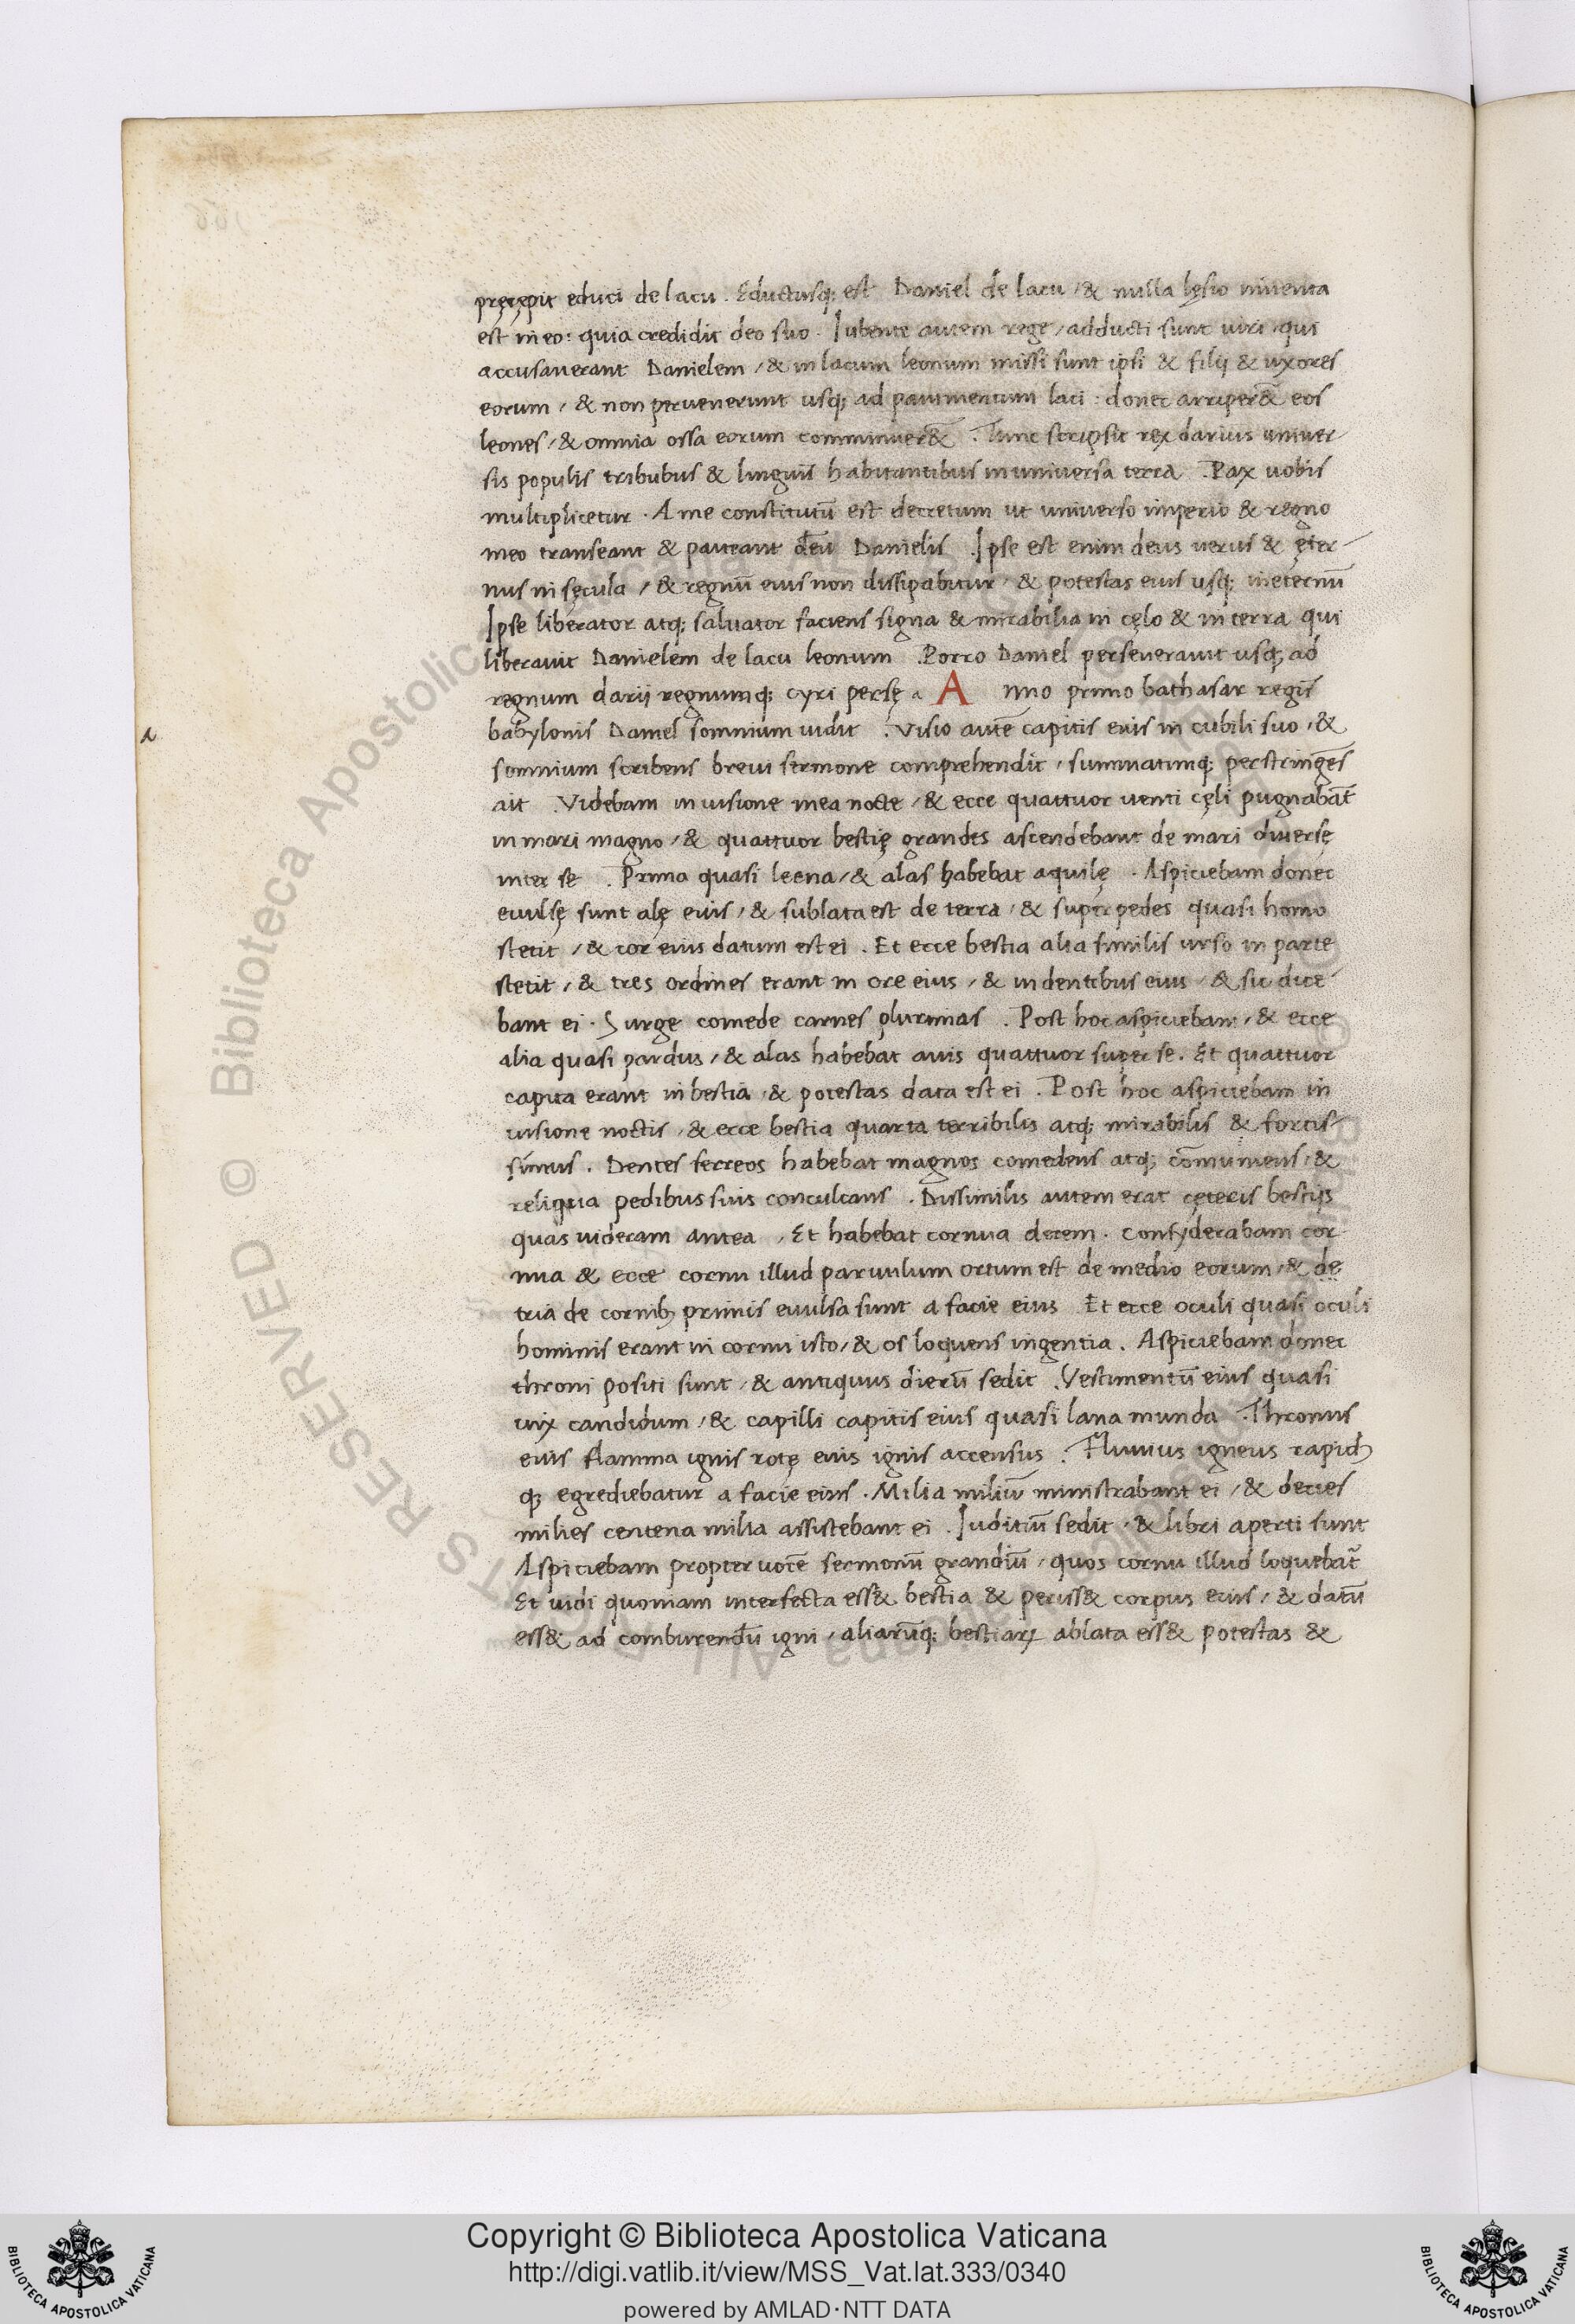 pręcępit educi de lacu . Eductusq; est Daniel de lacu / & nulla lęsio inventa
est in eo : quia credidit deo suo . Iubente autem rege / adducti sunt viri / qui
accusaverant Danielem / & in lacum leonum missi sunt ipsi & filij & uxores
eorum / & non pervenerunt usq; ad pavimentum laci : donec arriper&̄ eos
leones / & omnia ossa eorum comminuer&̄ . Tunc scripsit rex darius univer-
sis populis tribubus & linguis habitantibus in universa terra . Pax vobis
multiplicetur . A me constitutū est decretum ut universo imperio & regno
meo transeant & paveant deū Danielis . Ipse est enim deus verus & ęter-
nus in sęcula / & regnū eius non dissipabitur / & potestas eius usq; in eternū
Ipse liberator atq; salvator faciens signa & mirabilia in cęlo & in terra qui
liberavit Danielem de lacu leonum . Porro Daniel perseveravit usq; ad
regnum darij regnumq; cyri persę A nno primo bathasar regis
babylonis Daniel somnium vidit . Visio autē capitis eius in cubili suo / &
somnium scribens brevi sermone comprehendit / summatimq; perstringēs
ait . Videbam in visione mea nocte / & ecce quattuor venti cęli pugnabāt
in mari magno / & quattuor bestię grandes ascendebant de mari diversę
inter se . Prima quasi leena / & alas habebat aquilę . Aspiciebam donec
evulsę sunt alę eius / & sublata est de terra / & super pedes quasi homo
stetit / & cor eius datum est ei . Et ecce bestia alia similis urso in parte
stetit / & tres ordines erant in ore eius / & in dentibus eius / & sic dice-
bant ei . Surge comede carnes plurimas . Post hoc aspiciebam / & ecce
alia quasi pardus / & alas habebat avis quattuor super se . Et quattuor
capita erant in bestia / & potestas data est ei . Post hoc aspiciebam in
visione noctis / & ecce bestia quarta terribilis atq; mirabilis & fortis-
simus . Dentes ferreos habebat magnos comedens atq; cōminuens / &
reliqua pedibus suis conculcans . Dissimilis autem erat cęteris bestijs
quas videram antea / Et habebat cornua decem . Consyderabam cor-
nua & ecce cornu illud parvulum ortum est de medio eorum / & de
tria de cornib; primis evulsa sunt a facie eius Et ecce oculi quasi oculi
hominis erant in cornu isto / & os loquens ingentia . Aspiciebam donec
throni positi sunt / & antiquus dierū sedit . Vestimentū eius quasi
nix candidum / & capilli capitis eius quasi lana munda . Thronus
eius flamma ignis rotę eius ignis accensus . Fluvius igneus rapid9
q; egrediebatur a facie eius . Milia miliū ministrabant ei / & decies
milies centena milia assistebant ei . Iuditiū sedit / & libri aperti sunt
Aspiciebam propter vocē sermonū grandiū / quos cornu illud loquebat̄
Et vidi quoniam interfecta ess& bestia & periss& corpus eius / & datū
ess& ad comburendū igni / aliarūq; bestiaꝝ ablata ess& potestas &
Copyright © Biblioteca Apostolica Vaticana
http://digi.vatlib.it/view/MSS_Vat.lat.333/0340
powered by AMLAD·NTT DATA
BIBLIOTECA APOSTOLICA VATICANA
BIBLIOTECA APOSTOLICA VATICANA